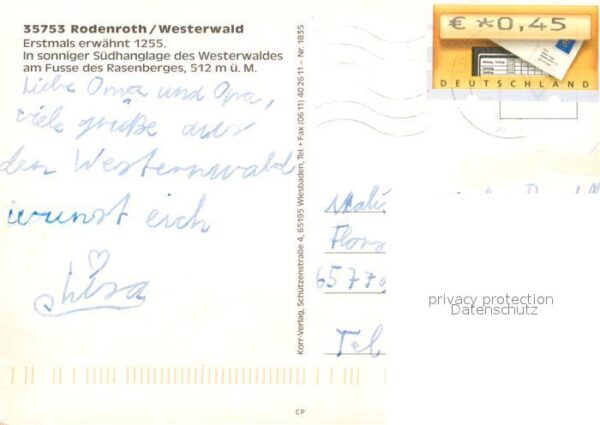 35753 Rodenroth/Westerwald
Erstmals erwähnt 1255.
In sonniger Südhanglage des Westerwaldes
am Fusse des Rasenberges, 512 m ü. M.
Liebe Oma und Opa,
viele grüße aus
den Westernwald
wunst eich
Lisa
Korr-Verlag, Schützenstraße 4, 65195 Wiesbaden, Tel. + Fax (0611) 402611 – Nr. 1835
€ *0,45
DEUTSCHLAND
Flors
6577
Tel
privacy protection
Datenschutz
CP